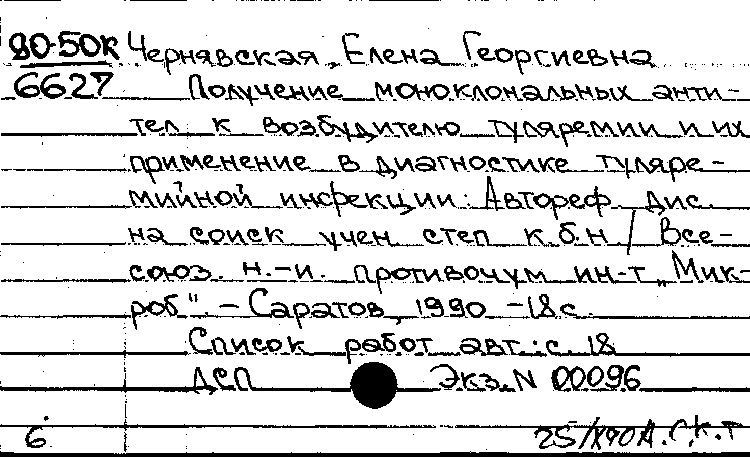 80-50К Чернявская, Елена Георгиевна
6627 Получение моноклональных анти-
тел к возбудителю туляремии и их
применение в диагностике туляре-
мийной инфекции: Автореф. дис.
на соиск учен степ к.б.н / Все-
союз. н.-и. противочум ин-т „Мик-
роб". - Саратов, 1990 - 18 с.
Список работ авт.: с. 18
ДСП Экз. N 00096
6